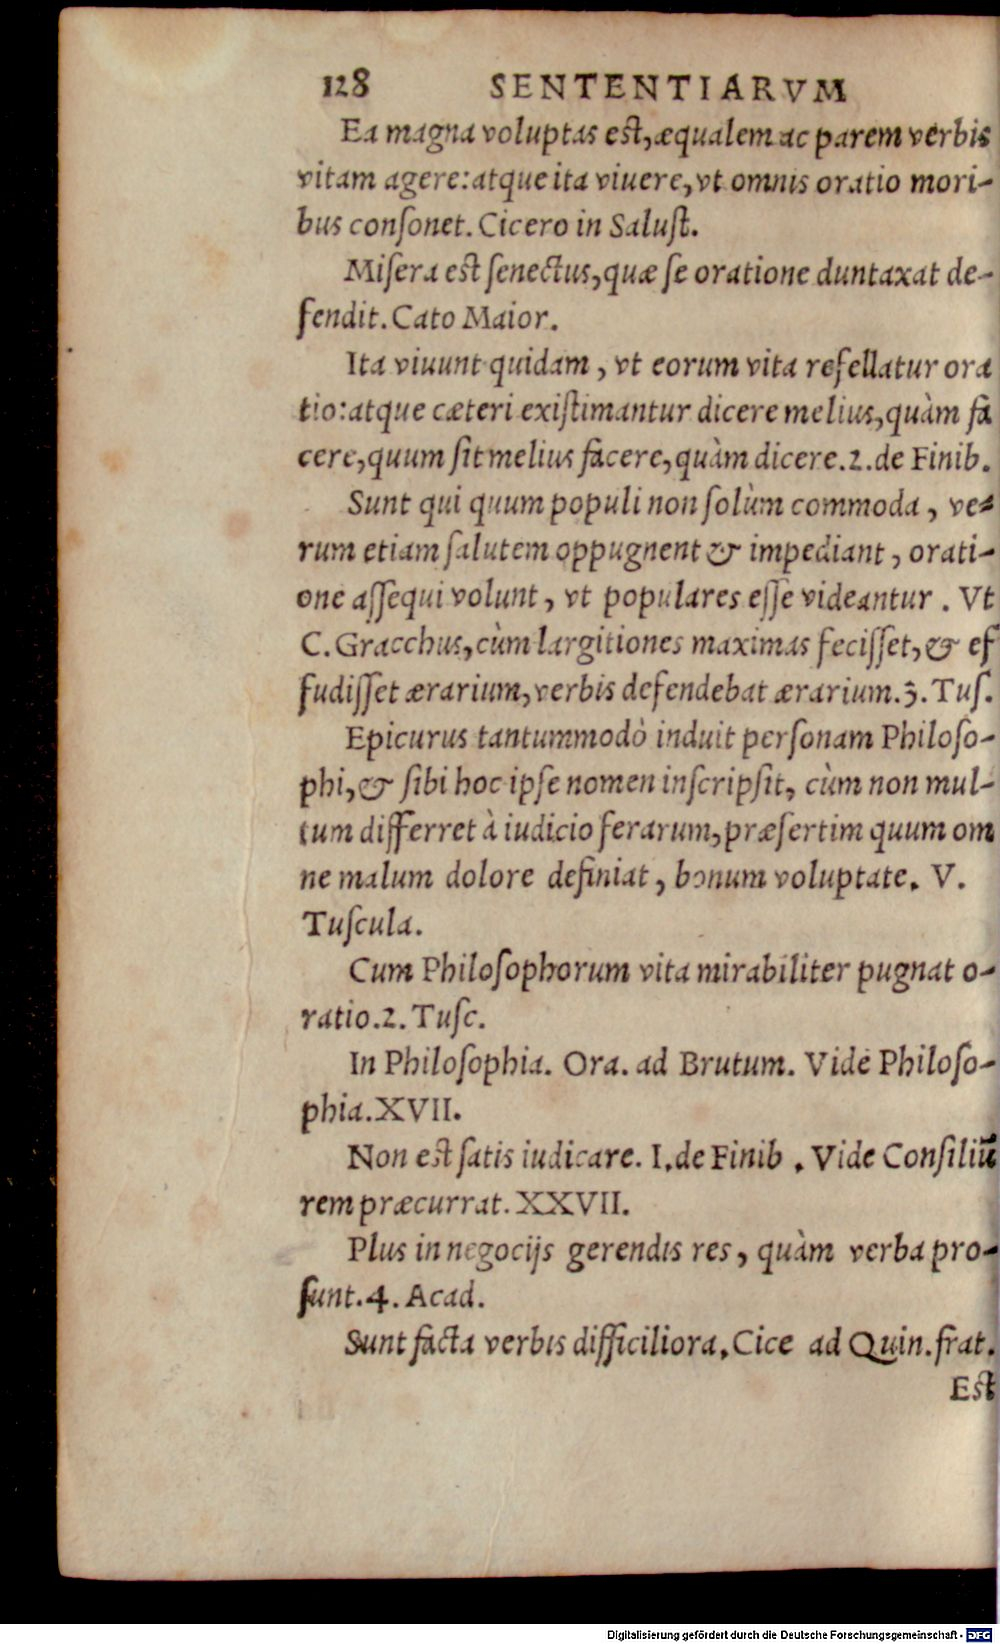 128 SENTENTIARVM
Ea magna voluptas est, æqualem ac parem verbis
vitam agere: atque ita viuere, vt omnis oratio mori-
bus conſonet. Cicero in Saluſt.
Miſera est ſenectus, quæ ſe oratione duntaxat de-
fendit. Cato Maior.
Ita viuunt quidam, vt eorum vita refellatur ora
tio: atque cæteri exiſtimantur dicere melius, quàm fa
cere, quum ſit melius facere, quàm dicere. 2. de Finib.
Sunt qui quum populi non ſolùm commoda, ve-
rum etiam ſalutem oppugnent & impediant, orati-
one aſſequi volunt, vt populares eſſe videantur. Vt
C. Gracchus, cùm largitiones maximas feciſſet, & ef
fudiſſet ærarium, verbis defendebat ærarium. 3. Tuſ.
Epicurus tantummodò induit perſonam Philoſo-
phi, & ſibi hoc ipſe nomen inſcripſit, cùm non mul-
tum differret à iudicio ferarum, præſertim quum om
ne malum dolore definiat, bonum voluptate. V.
Tuſcula.
Cum Philoſophorum vita mirabiliter pugnat o-
ratio. 2. Tuſc.
In Philoſophia. Ora. ad Brutum. Vide Philoſo-
phia. XVII.
Non est ſatis iudicare. I. de Finib. Vide Conſiliũ
rem præcurrat. XXVII.
Plus in negocijs gerendis res, quàm verba pro-
ſunt. 4. Acad.
Sunt facta verbis difficiliora. Cice ad Quin. frat.
Est
Digitalisierung gefördert durch die Deutsche Forschungsgemeinschaft - DFG